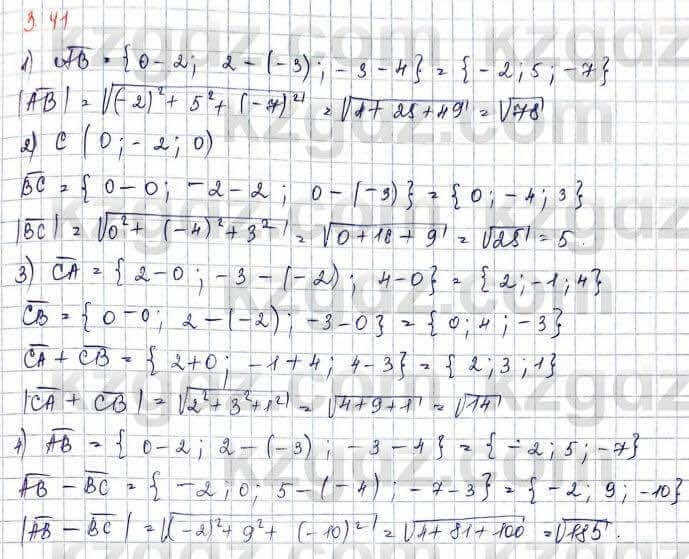 3.41
1) AB = { 0-2; 2-(-3); -3-4} = {-2; 5; -7}
|AB| = √((-2)²+5²+(-7)²) = √(4+25+49) = √78
2) C (0; -2; 0)
BC = { 0-0; -2-2; 0-(-3)} = {0; -4; 3}
|BC| = √(0²+(-4)²+3²) = √(0+16+9) = √25 = 5.
3) CA = {2-0; -3-(-2); 4-0} = {2; -1; 4}
CB = {0-0; 2-(-2); -3-0} = {0; 4; -3}
CA + CB = {2+0; -1+4; 4-3} = {2; 3; 1}
|CA + CB| = √(2²+3²+1²) = √(4+9+1) = √14
4) AB = {0-2; 2-(-3); -3-4} = {-2; 5; -7}
AB - BC = {-2; 0; 5-(-4); -7-3} = {-2; 9; -10}
|AB - BC| = √((-2)²+9²+(-10)²) = √(4+81+100) = √185.
kzgdz.com